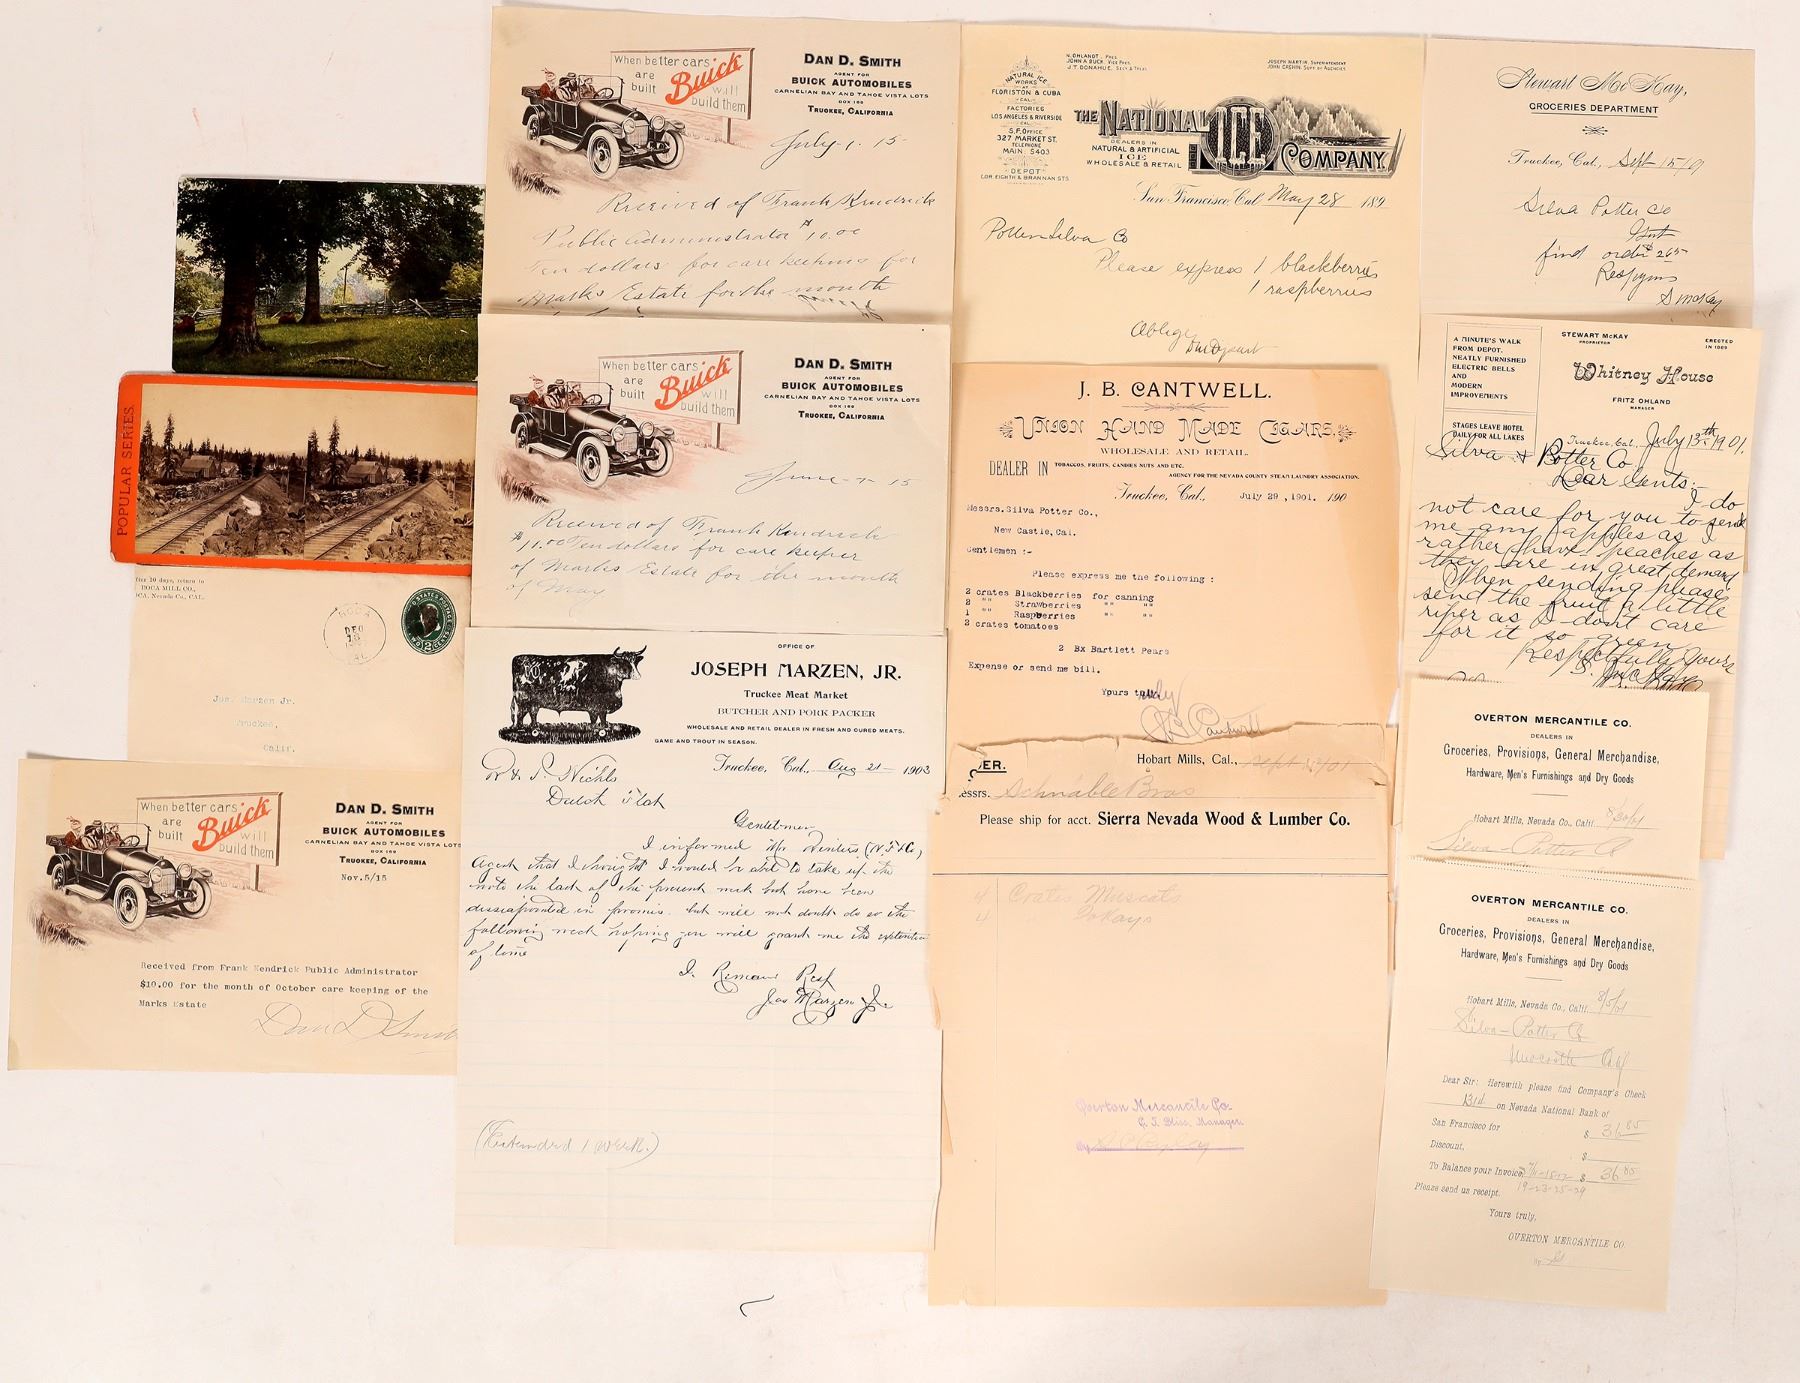 POPULAR SERIES.
after 10 days, return to
BOCA MILL CO.,
BOCA, Nevada Co., CAL.
BOCA
DEC
CAL
U.S. POSTAGE
TWO 2 CENTS
Jos. Marzen Jr.
Truckee,
Calif.
When better cars
are
built Buick will
build them
DAN D. SMITH
AGENT FOR
BUICK AUTOMOBILES
CARNELIAN BAY AND TAHOE VISTA LOTS
BOX 168
TRUCKEE, CALIFORNIA
Nov. 5/15
Received from Frank Kendrick Public Administrator
$10.00 for the month of October care keeping of the
Marks Estate
Dan D Smith
When better cars
are
built Buick will
build them
DAN D. SMITH
AGENT FOR
BUICK AUTOMOBILES
CARNELIAN BAY AND TAHOE VISTA LOTS
BOX 168
TRUCKEE, CALIFORNIA
July-1-15-
Received of Frank Kendrick
Public Administrator $10.00
Ten dollars for care keeping for
Marks Estate for the month
When better cars
are
built Buick will
build them
DAN D. SMITH
AGENT FOR
BUICK AUTOMOBILES
CARNELIAN BAY AND TAHOE VISTA LOTS
BOX 168
TRUCKEE, CALIFORNIA
June-1-15
Received of Frank Kendrick
Ten dollars for care keeper
of Marks Estate for the month
of May
OFFICE OF
JOSEPH MARZEN, JR.
Truckee Meat Market
BUTCHER AND PORK PACKER
WHOLESALE AND RETAIL DEALER IN FRESH AND CURED MEATS.
GAME AND TROUT IN SEASON.
Truckee, Cal., Aug 21- 1903
Dutch Flat
Gentlemen
I informed Mr
Agent that I thought I would be able to take up the
note the last of the present week but have been
dissapointed in promis. but will no doubt do so the
following week hoping you will grant me the extention
of time
I Remain Resf
Jos Marzen Jr
(Extended 1 week.)
N. OHLANDT, PRES.
JOHN A. BUCK, VICE PRES.
J. T. DONAHUE, SECY & TREAS.
JOSEPH MARTIN, SUPERINTENDENT
JOHN CASHIN, SUPT OF AGENCIES.
NATURAL ICE
WORKS
AT
FLORISTON & CUBA
CAL.
FACTORIES
LOS ANGELES & RIVERSIDE
CAL.
S.F. OFFICE
327 MARKET ST.
TELEPHONE
MAIN 5403
DEPOT
COR. EIGHTH & BRANNAN STS
THE NATIONAL ICE COMPANY.
DEALERS IN
NATURAL & ARTIFICIAL
ICE
WHOLESALE & RETAIL
San Francisco, Cal May 28 189
Potter Silva Co
Please express 1 blackberries
1 raspberries
Oblige
J. B. CANTWELL.
UNION HAND MADE CIGARS.
WHOLESALE AND RETAIL.
DEALER IN TOBACCOS, FRUITS, CANDIES NUTS AND ETC.
AGENCY FOR THE NEVADA COUNTY STEAM LAUNDRY ASSOCIATION.
Truckee, Cal. July 29, 1901. 190
Messrs. Silva Potter Co.,
New Castle, Cal.
Gentlemen :-
Please express me the following :
2 crates Blackberries for canning
2 "" Strawberries "" ""
1 "" Raspberries "" ""
2 crates tomatoes
2 Bx Bartlett Pears
Expense or send me bill.
Yours truly
J B Cantwell
Hobart Mills, Cal., Sept
Messrs. Schnable Bros
Please ship for acct. Sierra Nevada Wood & Lumber Co.
4 Crates Muscats
4 " Tokays
Overton Mercantile Co.
Manager
By
Stewart McKay,
GROCERIES DEPARTMENT
Truckee, Cal., Sept 15/01
Silva Potter Co
find order
S McKay
A MINUTE'S WALK
FROM DEPOT.
NEATLY FURNISHED
ELECTRIC BELLS
AND
MODERN
IMPROVEMENTS
STAGES LEAVE HOTEL
DAILY FOR ALL LAKES
STEWART McKAY
PROPRIETOR
ERECTED
IN 1869
Whitney House
FRITZ OHLAND
MANAGER
Truckee, Cal., July 13th 1901.
Silva & Potter Co.
Dear Gents:-
I do
not care for you to send
me any apples as I
rather have peaches as
they are in great demand
When sending please
send the fruit a little
riper as I dont care
for it so green
Respectfully Yours
S. McKay
OVERTON MERCANTILE CO.
DEALERS IN
Groceries, Provisions, General Merchandise,
Hardware, Men's Furnishings and Dry Goods
Hobart Mills, Nevada Co., Calif. 8/30/01
Silva-Potter Co
OVERTON MERCANTILE CO.
DEALERS IN
Groceries, Provisions, General Merchandise,
Hardware, Men's Furnishings and Dry Goods
Hobart Mills, Nevada Co., Calif. 8/5/01
Silva-Potter Co
Newcastle Calf
Dear Sir: Herewith please find Company's Check
1314 on Nevada National Bank of
San Francisco for $ 36.85
Discount, $
To Balance your Invoice $ 36.85
Please send us receipt. 19-23-25-29
Yours truly,
OVERTON MERCANTILE CO.
By